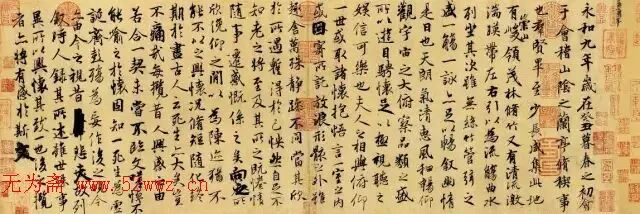 永和九年歲在癸丑暮春之初會
于會稽山陰之蘭亭脩稧事
也羣賢畢至少長咸集此地
有崇山峻領茂林脩竹又有清流激
湍暎帶左右引以為流觴曲水
列坐其次雖無絲竹管弦之
盛一觴一詠亦足以暢敘幽情
是日也天朗氣清惠風和暢仰
觀宇宙之大俯察品類之盛
所以遊目騁懷足以極視聽之
娛信可樂也夫人之相與俯仰
一世或取諸懷抱悟言一室之內
或因寄所託放浪形骸之外雖
趣舍萬殊靜躁不同當其欣
於所遇蹔得於己怏然自足不
知老之將至及其所之既惓情
隨事遷感慨係之矣向之所
欣俛仰之閒以為陳迹猶不
能不以之興懷況脩短隨化終
期於盡古人云死生亦大矣豈
不痛哉每攬昔人興感之由
若合一契未嘗不臨文嗟悼不
能喻之於懷固知一死生為虛
誕齊彭殤為妄作後之視今
亦由今之視昔悲夫故列
敘時人錄其所述雖世殊事
異所以興懷其致一也後之攬
者亦將有感於斯文
无为斋
www.52wwz.cn